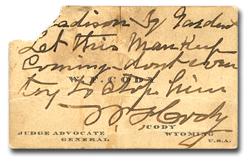 Madison Sq Garden
Let this Man Keep
Coming dont ever
W. F. CODY
try to stop him
W F Cody
JUDGE ADVOCATE
GENERAL
CODY
WYOMING
U.S.A.